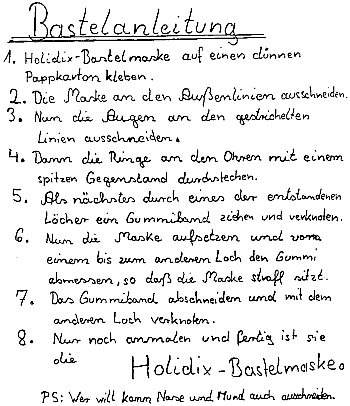 Bastelanleitung
1. Holidix-Bastelmaske auf einen dünnen
Pappkarton kleben.
2. Die Maske an den Außenlinien ausschneiden.
3. Nun die Augen an den gestrichelten
Linien ausschneiden.
4. Dann die Ringe an den Ohren mit einem
spitzen Gegenstand durchstechen.
5. Als nächstes durch eines der entstandenen
Löcher ein Gummiband ziehen und verknoten.
6. Nun die Maske aufsetzen und vom
einem bis zum anderen Loch den Gummi
abmessen, so daß die Maske straff sitzt.
7. Das Gummiband abschneiden und mit dem
anderen Loch verknoten.
8. Nur noch anmalen und fertig ist sie
die Holidix-Bastelmaske.
PS: Wer will kann Nase und Mund auch ausschneiden.